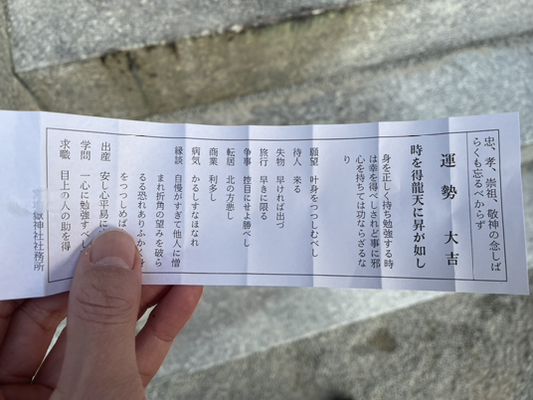 忠、孝、崇祖、敬神の念しば
らくも忘るべからず
運勢 大吉
時を得龍天に昇が如し
身を正しく持ち勉強する時
は幸を得べしされど事に邪
心を持ちては功ならざるな
り
願望 叶身をつつしむべし
待人 来る
失物 早ければ出づ
旅行 早きに限る
争事 控目にせよ勝べし
転居 北の方悪し
商業 利多し
病気 かるしすなほなれ
縁談 自慢がすぎて他人に憎
まれ折角の望みを破ら
るる恐れありふかく
をつつしめば
出産 安し心平易に
学問 一心に勉強すべし
求職 目上の人の助を得
嶽神社社務所